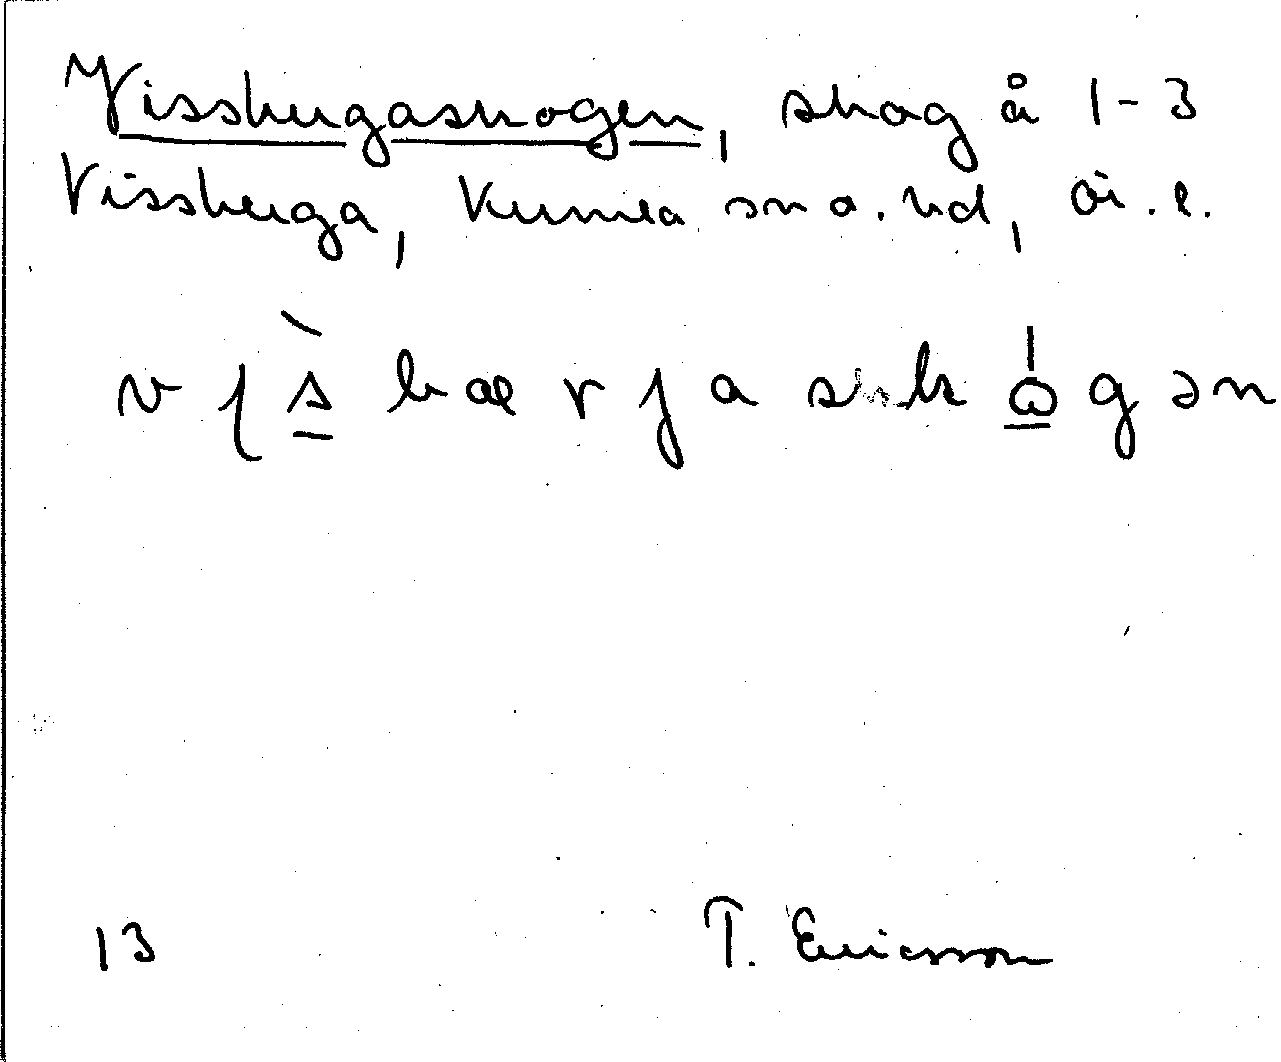 Vissbergaskogen, skog å 1-3
Vissberga, Kumla sn o. hd, ö.l.
v ɩ s̀ b æ r j a s k ω g ə n
13
T. Ericsson